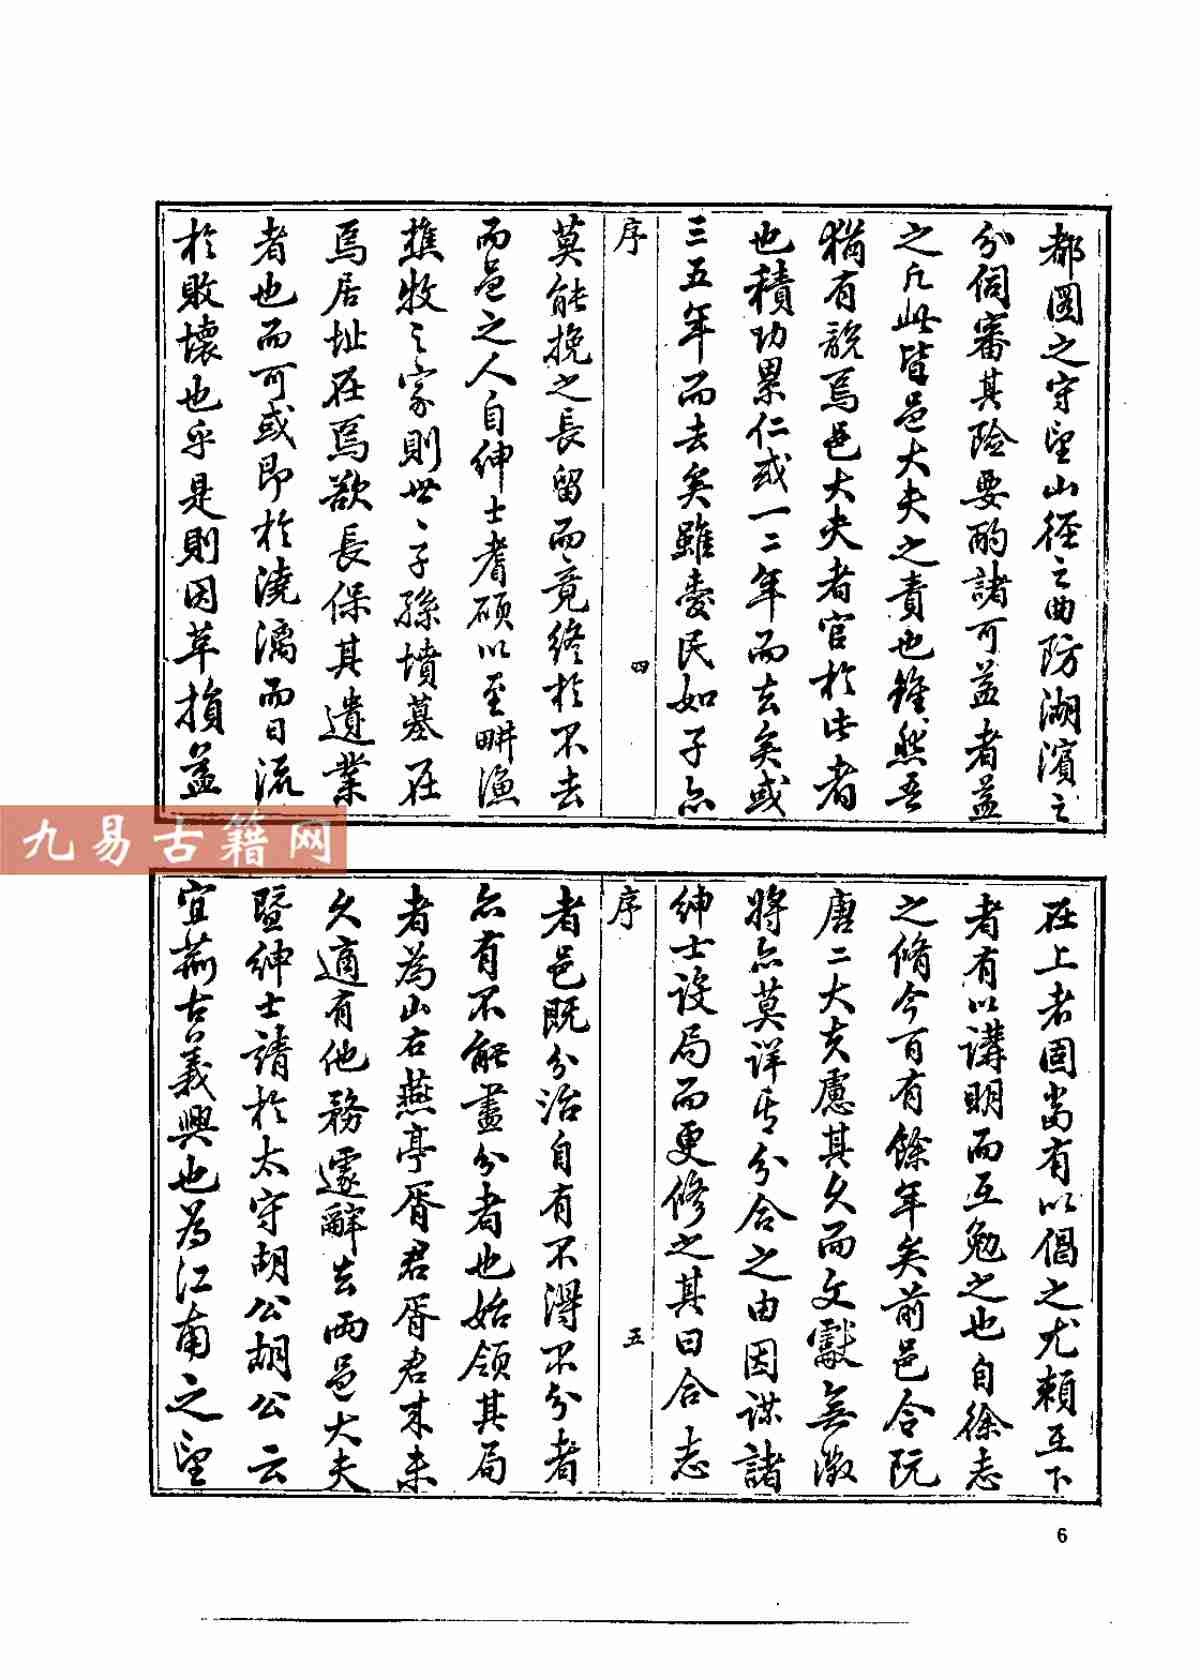 都圖之守望山徑之曲防湖濱之
分伺審其險要酌諸可益者益
之凡此皆邑大夫之責也雖然吾
猶有說焉邑大夫者官於此者
也積功累仁或一二年而去矣或
三五年而去矣雖愛民如子亦
序
四
莫能挽之長留而竟終於不去
而邑之人自紳士耆碩以至畊漁
樵牧之家則世〻子孫墳墓在
焉居址在焉欲長保其遺業
者也而可或即於澆漓而日流
於敗壞也乎是則因革損益
九易古籍网
在上者固當有以倡之尤賴在下
者有以講明而互勉之也自徐志
之脩今百有餘年矣前邑令阮
唐二大夫慮其久而文獻無徵
將亦莫詳其分合之由因謀諸
紳士設局而更修之其曰合志
序
五
者邑既分治自有不得不分者
亦有不能盡分者也始領其局
者為山右燕亭胥君胥君來未
久適有他務遽辭去兩邑大夫
暨紳士請於太守胡公胡公云
宜荊古義興也為江南之望
6